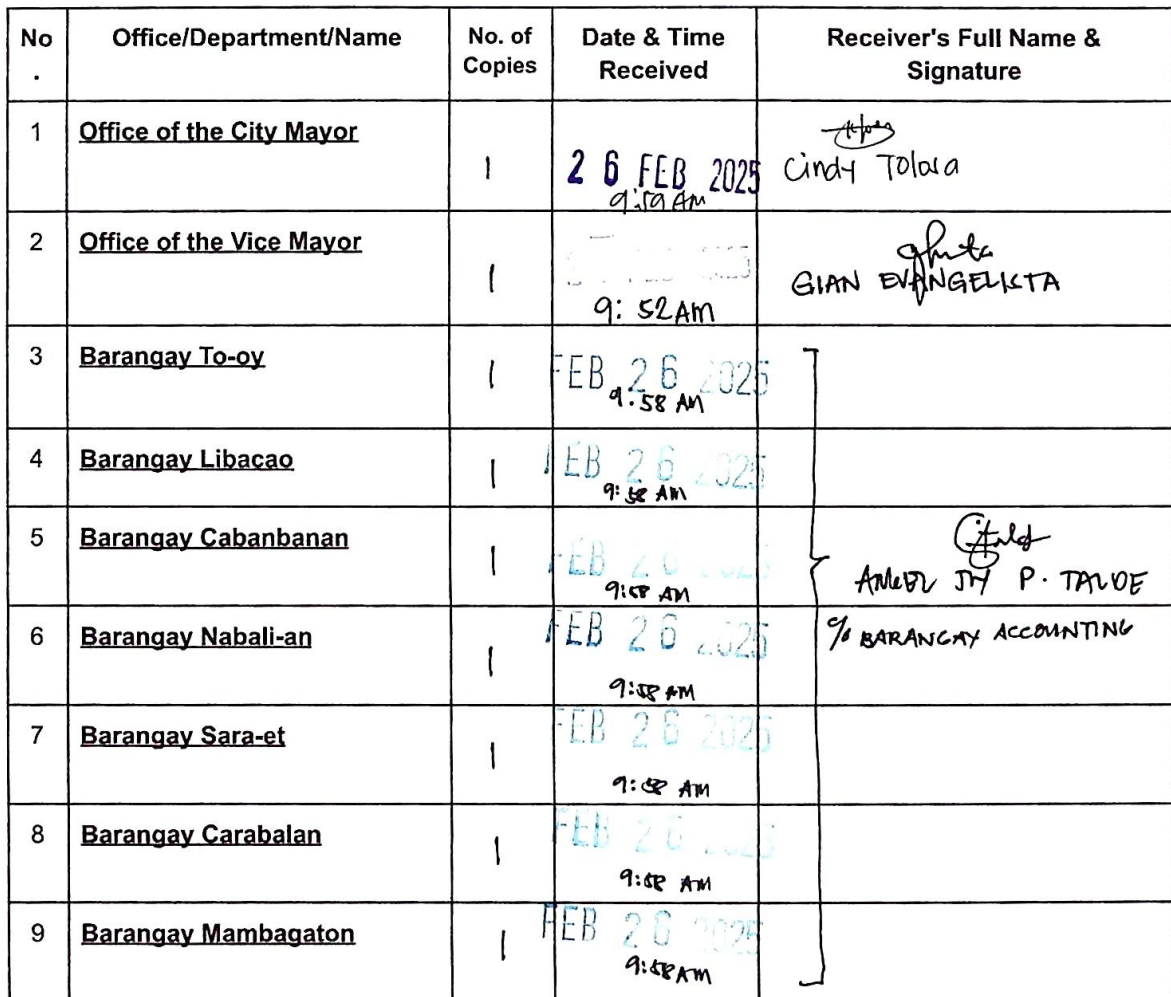 No Office/Department/Name No. of Date & Time Receiver's Full Name &
. Copies Received Signature
1 Office of the City Mayor
1 26 FEB 2025 Cindy
9:59 AM
2 Office of the Vice Mayor
1 GIAN EVANGELISTA
9:52 AM
3 Barangay To-oy 1 FEB 26 2025
9:58 AM
4 Barangay Libacao 1 FEB 26 2025
9:58 AM
5 Barangay Cabanbanan 1 FEB 26 2025
9:58 AM JOY P.
6 Barangay Nabali-an 1 FEB 26 2025 % BARANGAY ACCOUNTING
9:58 AM
7 Barangay Sara-et 1 FEB 26 2025
9:58 AM
8 Barangay Carabalan 1 FEB 26 2025
9:58 AM
9 Barangay Mambagaton 1 FEB 26 2025
9:58 AM